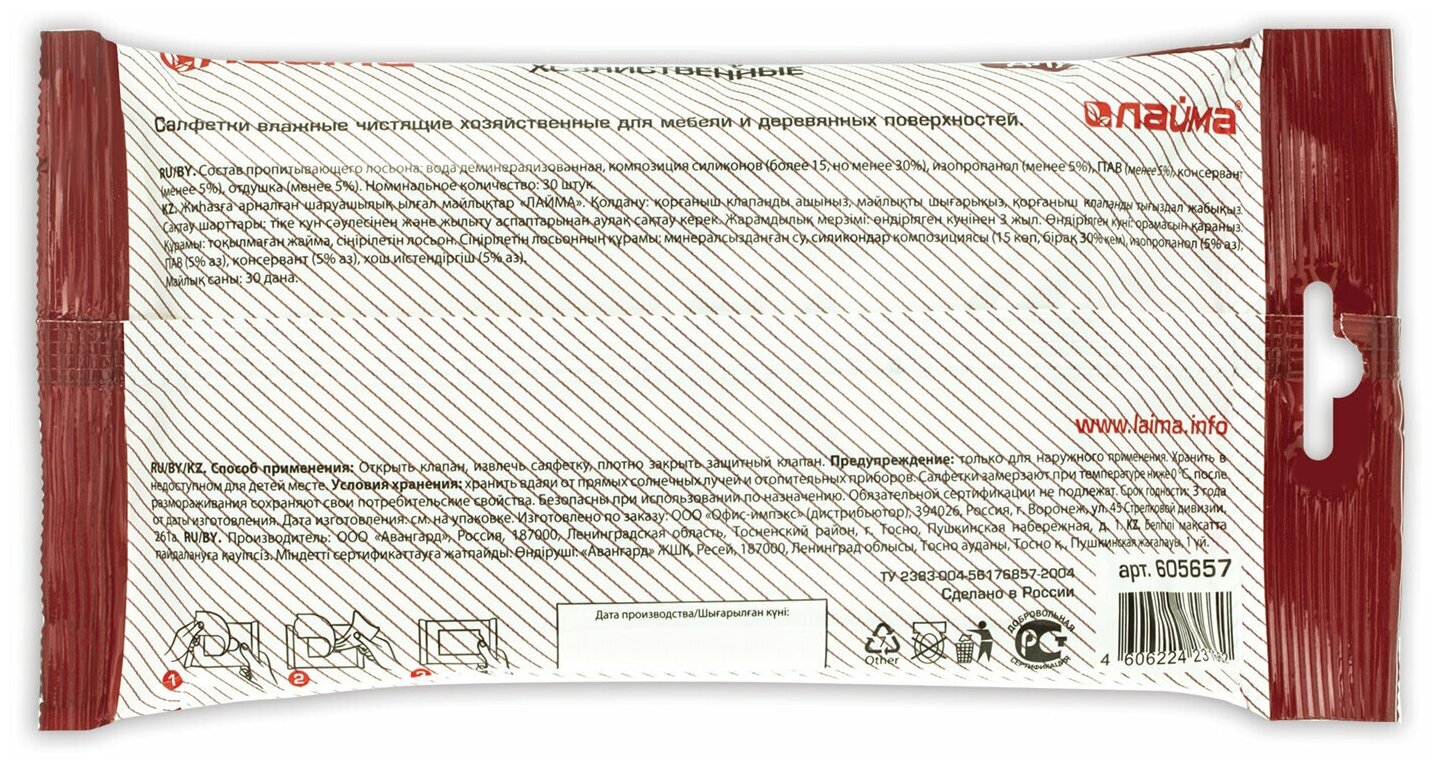 ХОЗЯЙСТВЕННЫЕ
лайма®
Салфетки влажные чистящие хозяйственные для мебели и деревянных поверхностей.
RU/BY. Состав пропитывающего лосьона: вода деминерализованная, композиция силиконов (более 15, но менее 30%), изопропанол (менее 5%), ПАВ (менее 5%), консервант
(менее 5%), отдушка (менее 5%). Номинальное количество: 30 штук.
KZ. Жиһазға арналған шаруашылық ылғал майлықтар «ЛАЙМА». Қолдану: қорғаныш клапанды ашыңыз, майлықты шығарыңыз, қорғаныш клапанды тығыздап жабыңыз.
Сақтау шарттары: тіке күн сәулесінен және жылыту аспаптарынан аулақ сақтау керек. Жарамдылық мерзімі: өндірілген күнінен 3 жыл. Өндірілген күні: орамасын қараңыз.
Құрамы: тоқылмаған жайма, сіңірілетін лосьон. Сіңірілетін лосьонның құрамы: минералсызданған су, силикондар композициясы (15 көп, бірақ 30% кем), изопропанол (5% аз),
ПАВ (5% аз), консервант (5% аз), хош иістендіргіш (5% аз).
Майлық саны: 30 дана.
www.laima.info
RU/BY/KZ. Способ применения: Открыть клапан, извлечь салфетку, плотно закрыть защитный клапан. Предупреждение: только для наружного применения. Хранить в
недоступном для детей месте. Условия хранения: хранить вдали от прямых солнечных лучей и отопительных приборов. Салфетки замерзают при температуре ниже 0 °С, после
размораживания сохраняют свои потребительские свойства. Безопасны при использовании по назначению. Обязательной сертификации не подлежат. Срок годности: 3 года
от даты изготовления. Дата изготовления: см. на упаковке. Изготовлено по заказу: ООО «Офис-импэкс» (дистрибьютор), 394026, Россия, г. Воронеж, ул. 45 Стрелковой дивизии,
261а. RU/BY. Производитель: ООО «Авангард», Россия, 187000, Ленинградская область, Тосненский район, г. Тосно, Пушкинская набережная, д. 1. KZ. Белгілі мақсатта
пайдалануға қауіпсіз. Міндетті сертификаттауға жатпайды. Өндіруші: «Авангард» ЖШҚ, Ресей, 187000, Ленинград облысы, Тосно ауданы, Тосно қ., Пушкинская жағалауы, 1 үй.
ТУ 2383-004-56176857-2004
Сделано в России
арт. 605657
Дата производства/Шығарылған күні:
1 2
Other
ДОБРОВОЛЬНАЯ
РСТ
СЕРТИФИКАЦИЯ
4 606224 23